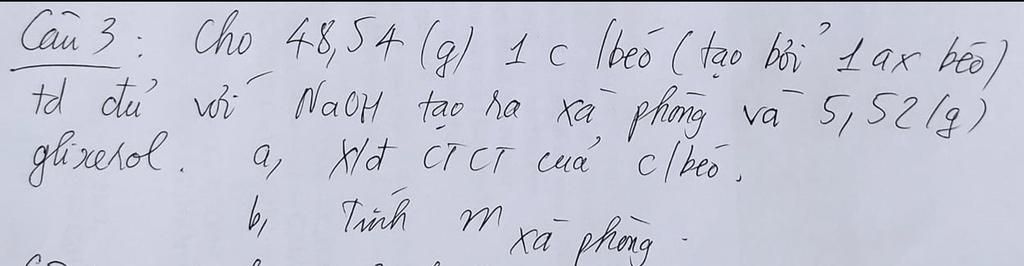 Câu 3: Cho 48,54 (g) 1 c/béo (tạo bởi 1 ax béo)
td đủ với NaOH tạo ra xà phòng và 5,52 (g)
glixerol. a, X/đ CTCT của c/béo.
b, Tính m xà phòng.